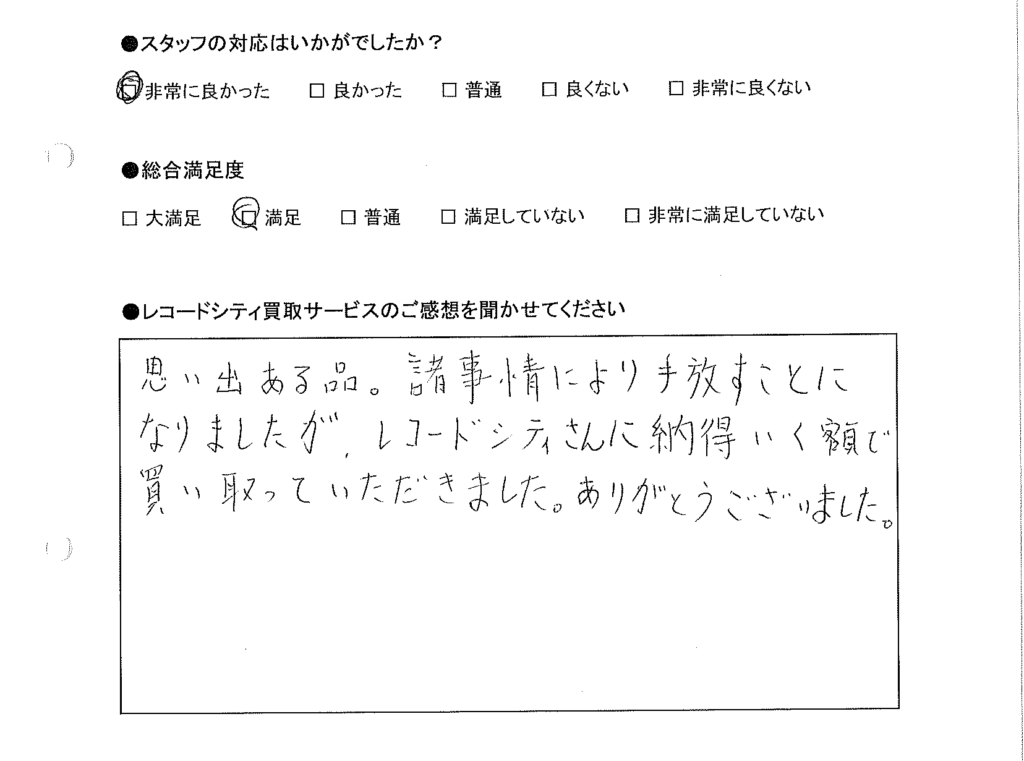 ●スタッフの対応はいかがでしたか？
□ 非常に良かった □ 良かった □ 普通 □ 良くない □ 非常に良くない
●総合満足度
□ 大満足 □ 満足 □ 普通 □ 満足していない □ 非常に満足していない
●レコードシティ買取サービスのご感想を聞かせてください
思い出ある品。諸事情により手放すことに
なりましたが、レコードシティさんに納得いく額で
買い取っていただきました。ありがとうございました。